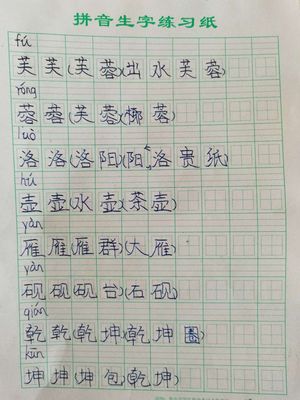 拼音生字练习纸
fú
芙芙(芙蓉)(出水芙蓉)
róng
蓉蓉(芙蓉)(椰蓉)
luò
洛洛(洛阳)(洛阳贵纸)
hú
壶壶(水壶)(茶壶)
yàn
雁雁(雁群)(大雁)
yàn
砚砚(砚台)(石砚)
qián
乾乾(乾坤)(乾坤圈)
kūn
坤坤(坤包)(乾坤)